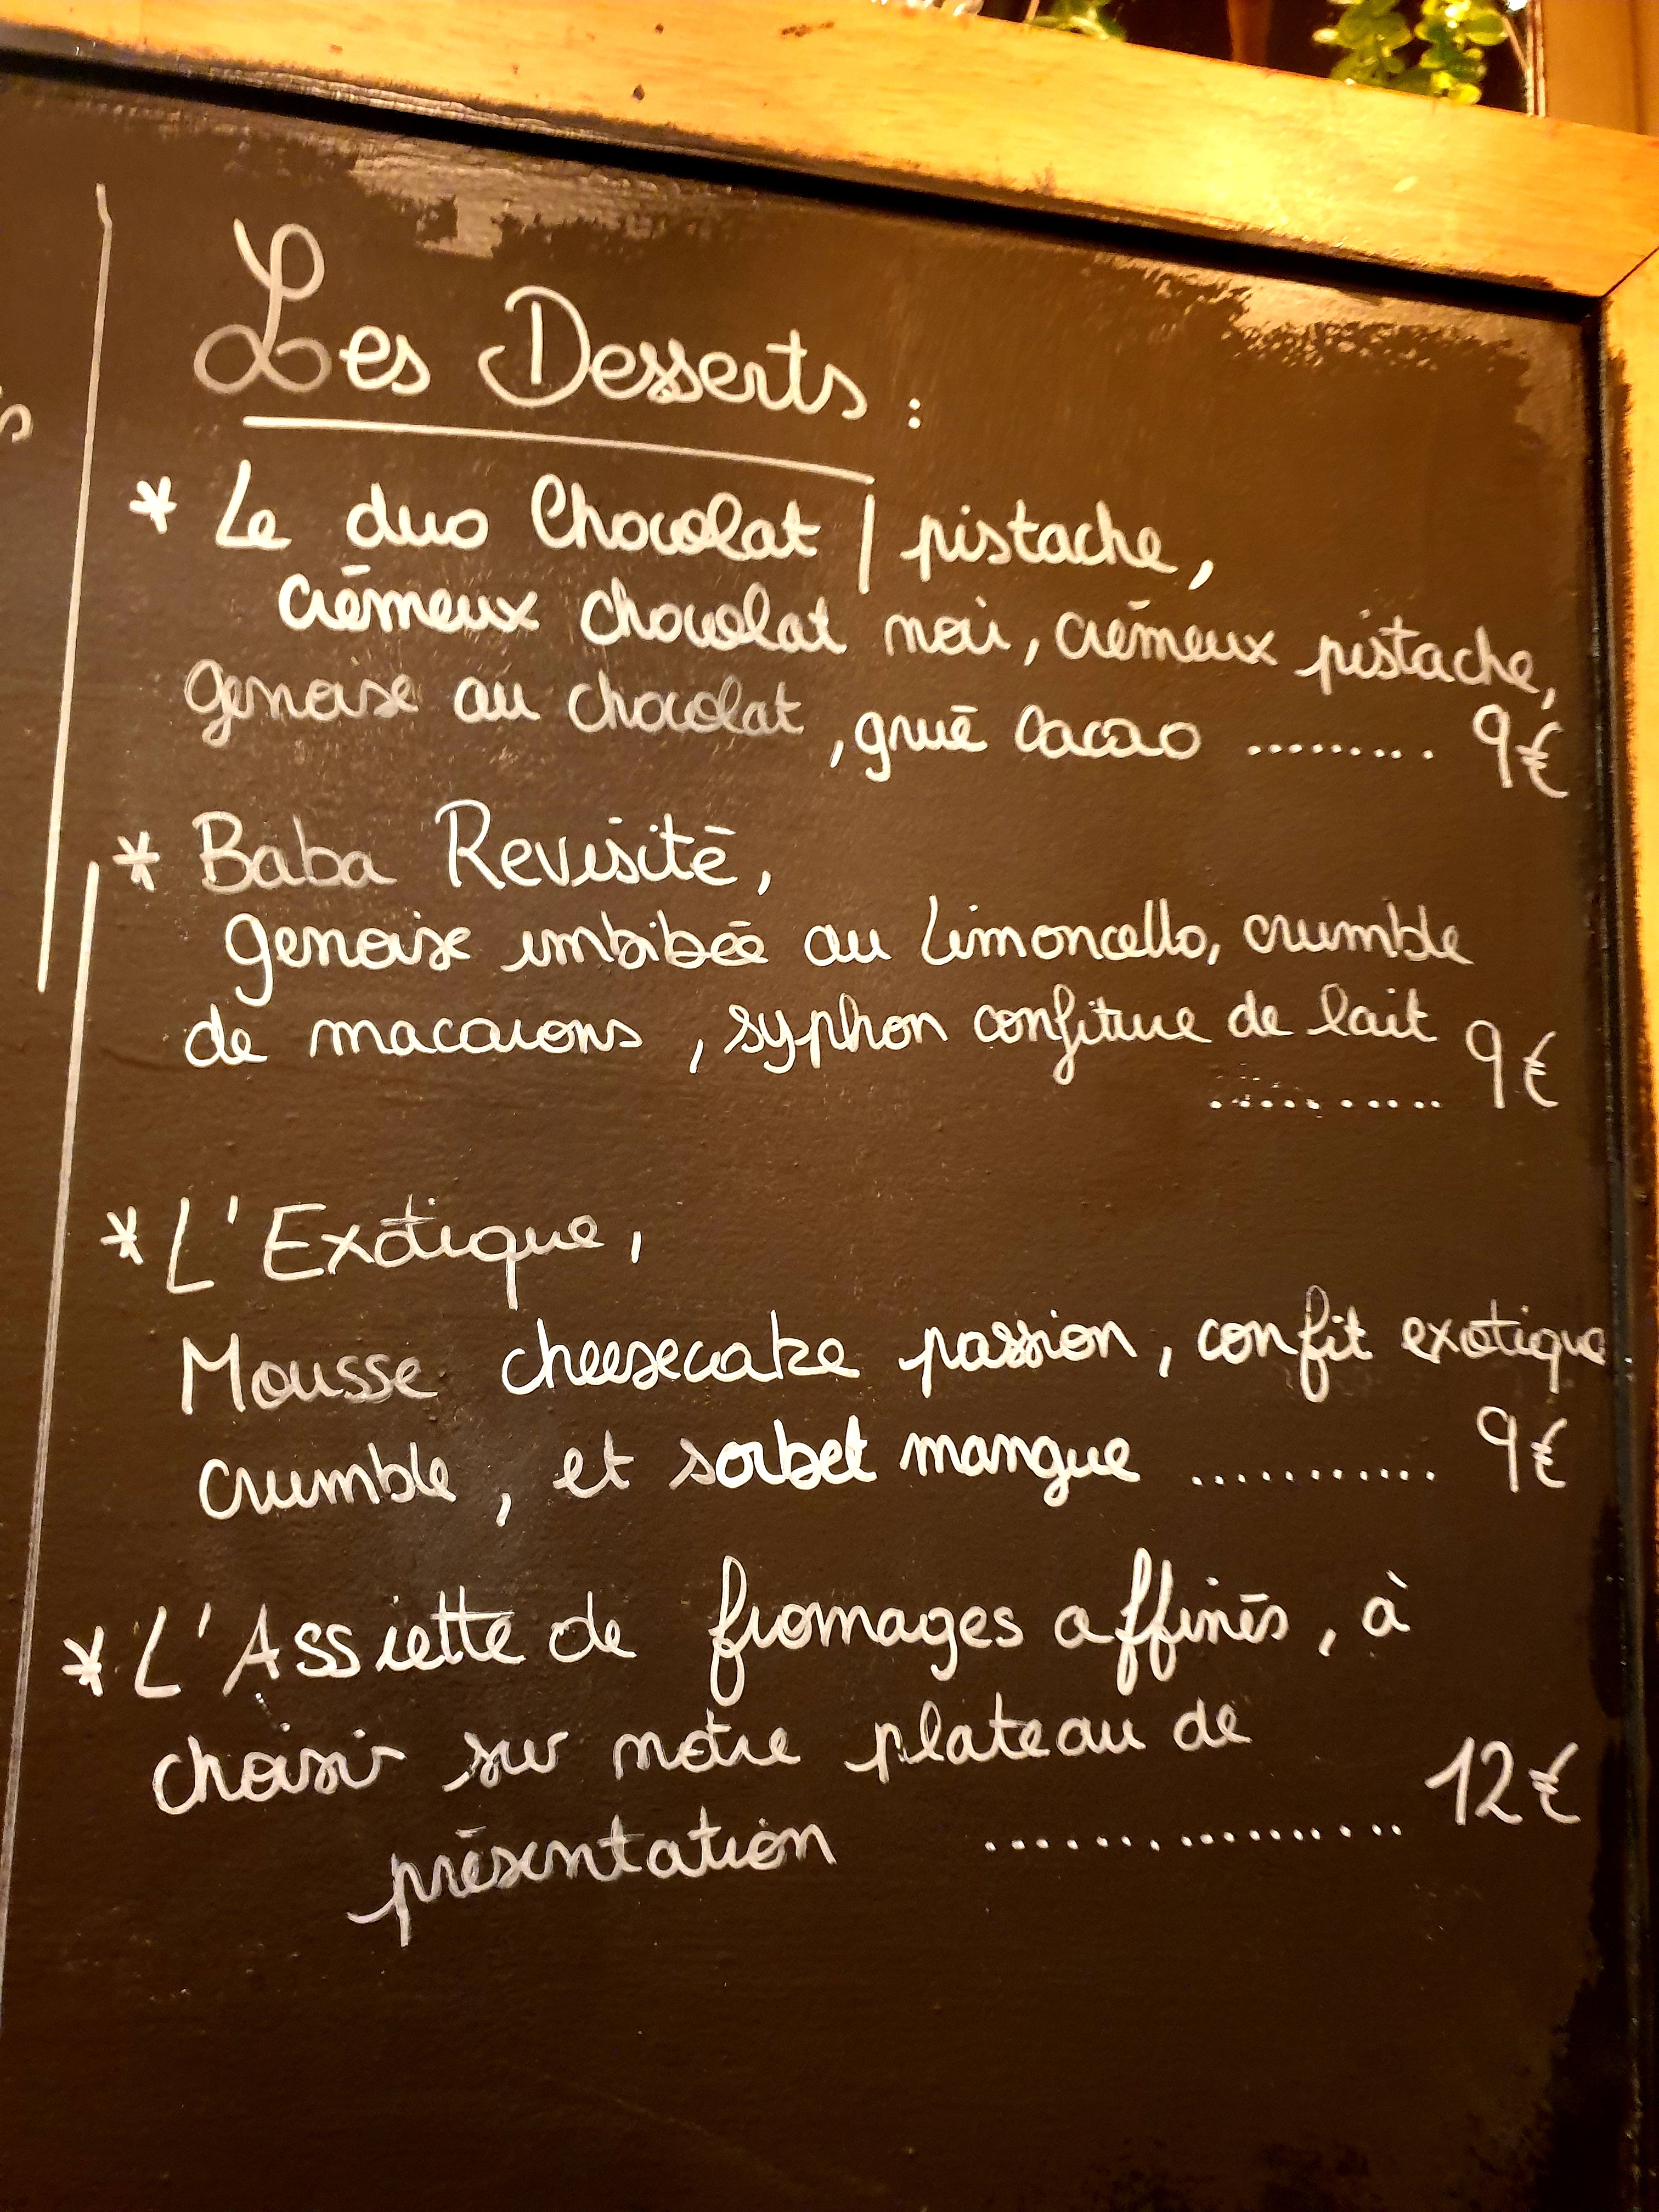 Les Desserts :
* Le duo Chocolat | pistache,
crémeux chocolat noir, crémeux pistache,
genoise au chocolat, grué cacao ......... 9€
* Baba Revisité,
genoise imbibée au Limoncello, crumble
de macarons, syphon confiture de lait
.......... 9€
* L'Exotique,
Mousse cheesecake passion, confit exotique
crumble, et sorbet mangue ............ 9€
* L'Assiette de fromages affinés, à
choisir sur notre plateau de
présentation .................. 12€